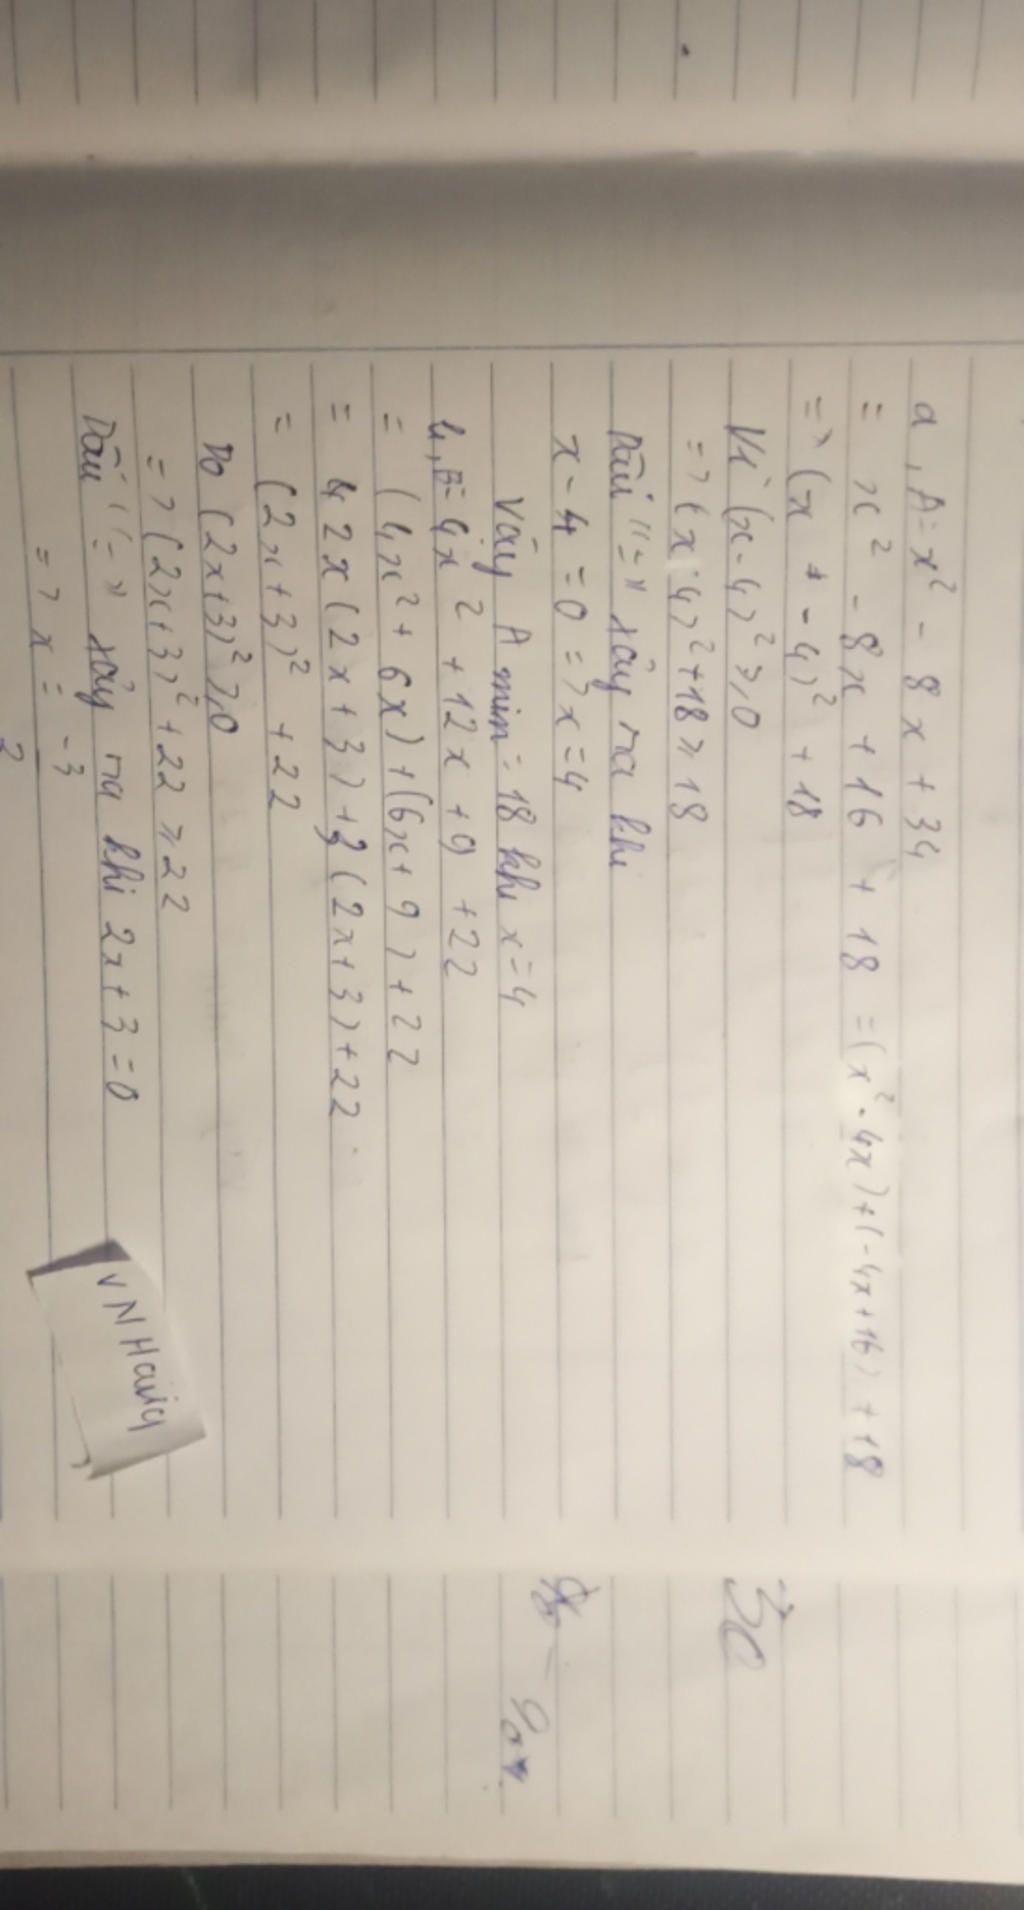 a, A = x² - 8x + 34
= x² - 8x + 16 + 18 = (x² - 4x) + (-4x + 16) + 18
=> (x - 4)² + 18
Vì (x - 4)² ≥ 0
=> (x - 4)² + 18 ≥ 18
Dấu "=" xảy ra khi
x - 4 = 0 => x = 4
Vậy A min = 18 khi x = 4
b, B = 4x² + 12x + 9 + 22
= (4x² + 6x) + (6x + 9) + 22
= 2x(2x + 3) + 3(2x + 3) + 22
= (2x + 3)² + 22
Do (2x + 3)² ≥ 0
=> (2x + 3)² + 22 ≥ 22
Dấu "=" xảy ra khi 2x + 3 = 0
=> x = -3/2
VN Hania